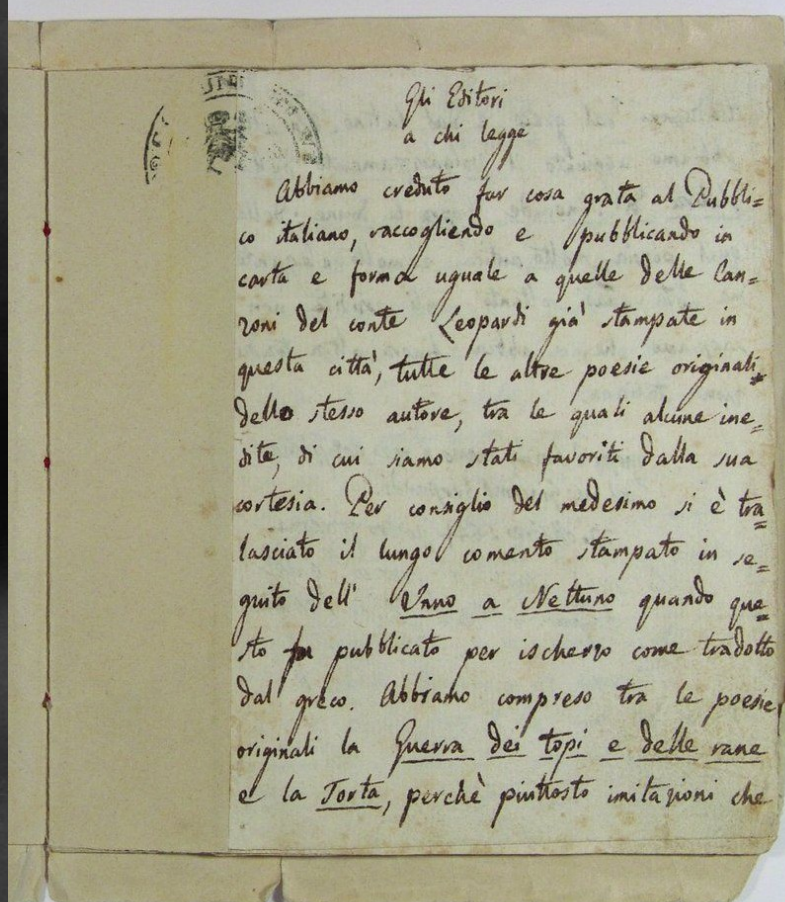 Gli Editori
a chi legge
Abbiamo creduto far cosa grata al Pubbli=
co italiano, raccogliendo e pubblicando in
carta e forma uguale a quelle delle Can=
zoni del conte Leopardi già stampate in
questa città, tutte le altre poesie originali
dello stesso autore, tra le quali alcune ine=
dite, di cui siamo stati favoriti dalla sua
cortesia. Per consiglio del medesimo si è tra=
lasciato il lungo comento stampato in se=
guito dell' Inno a Nettuno quando que=
sto fu pubblicato per ischerzo come tradotto
dal greco. Abbiamo compreso tra le poesie
originali la Guerra dei topi e delle rane
e la Torta, perchè piuttosto imitazioni che